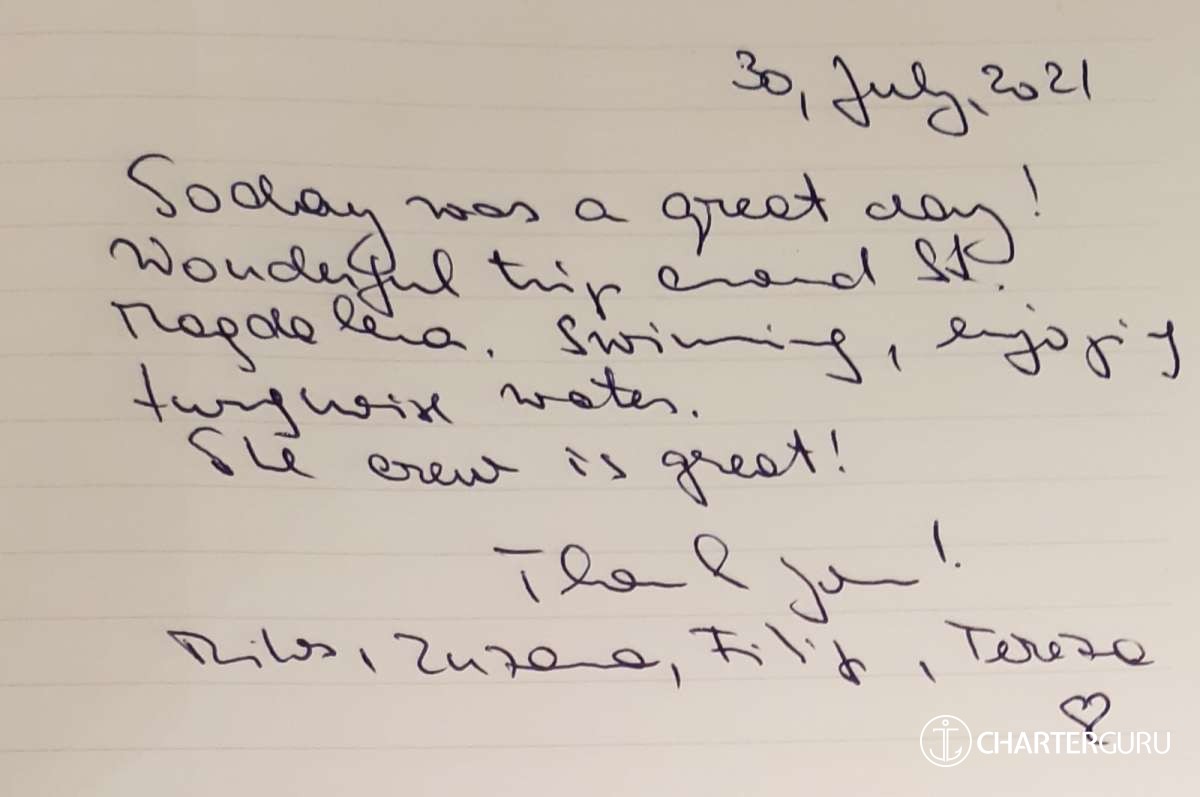 30, July, 2021
Today was a great day!
Wonderful trip around St.
Magdalena. Swimming, enjoying
turquoise water.
The crew is great!
Thank you!
Milos, Zuzana, Filip, Tereza
♡
CHARTERGURU